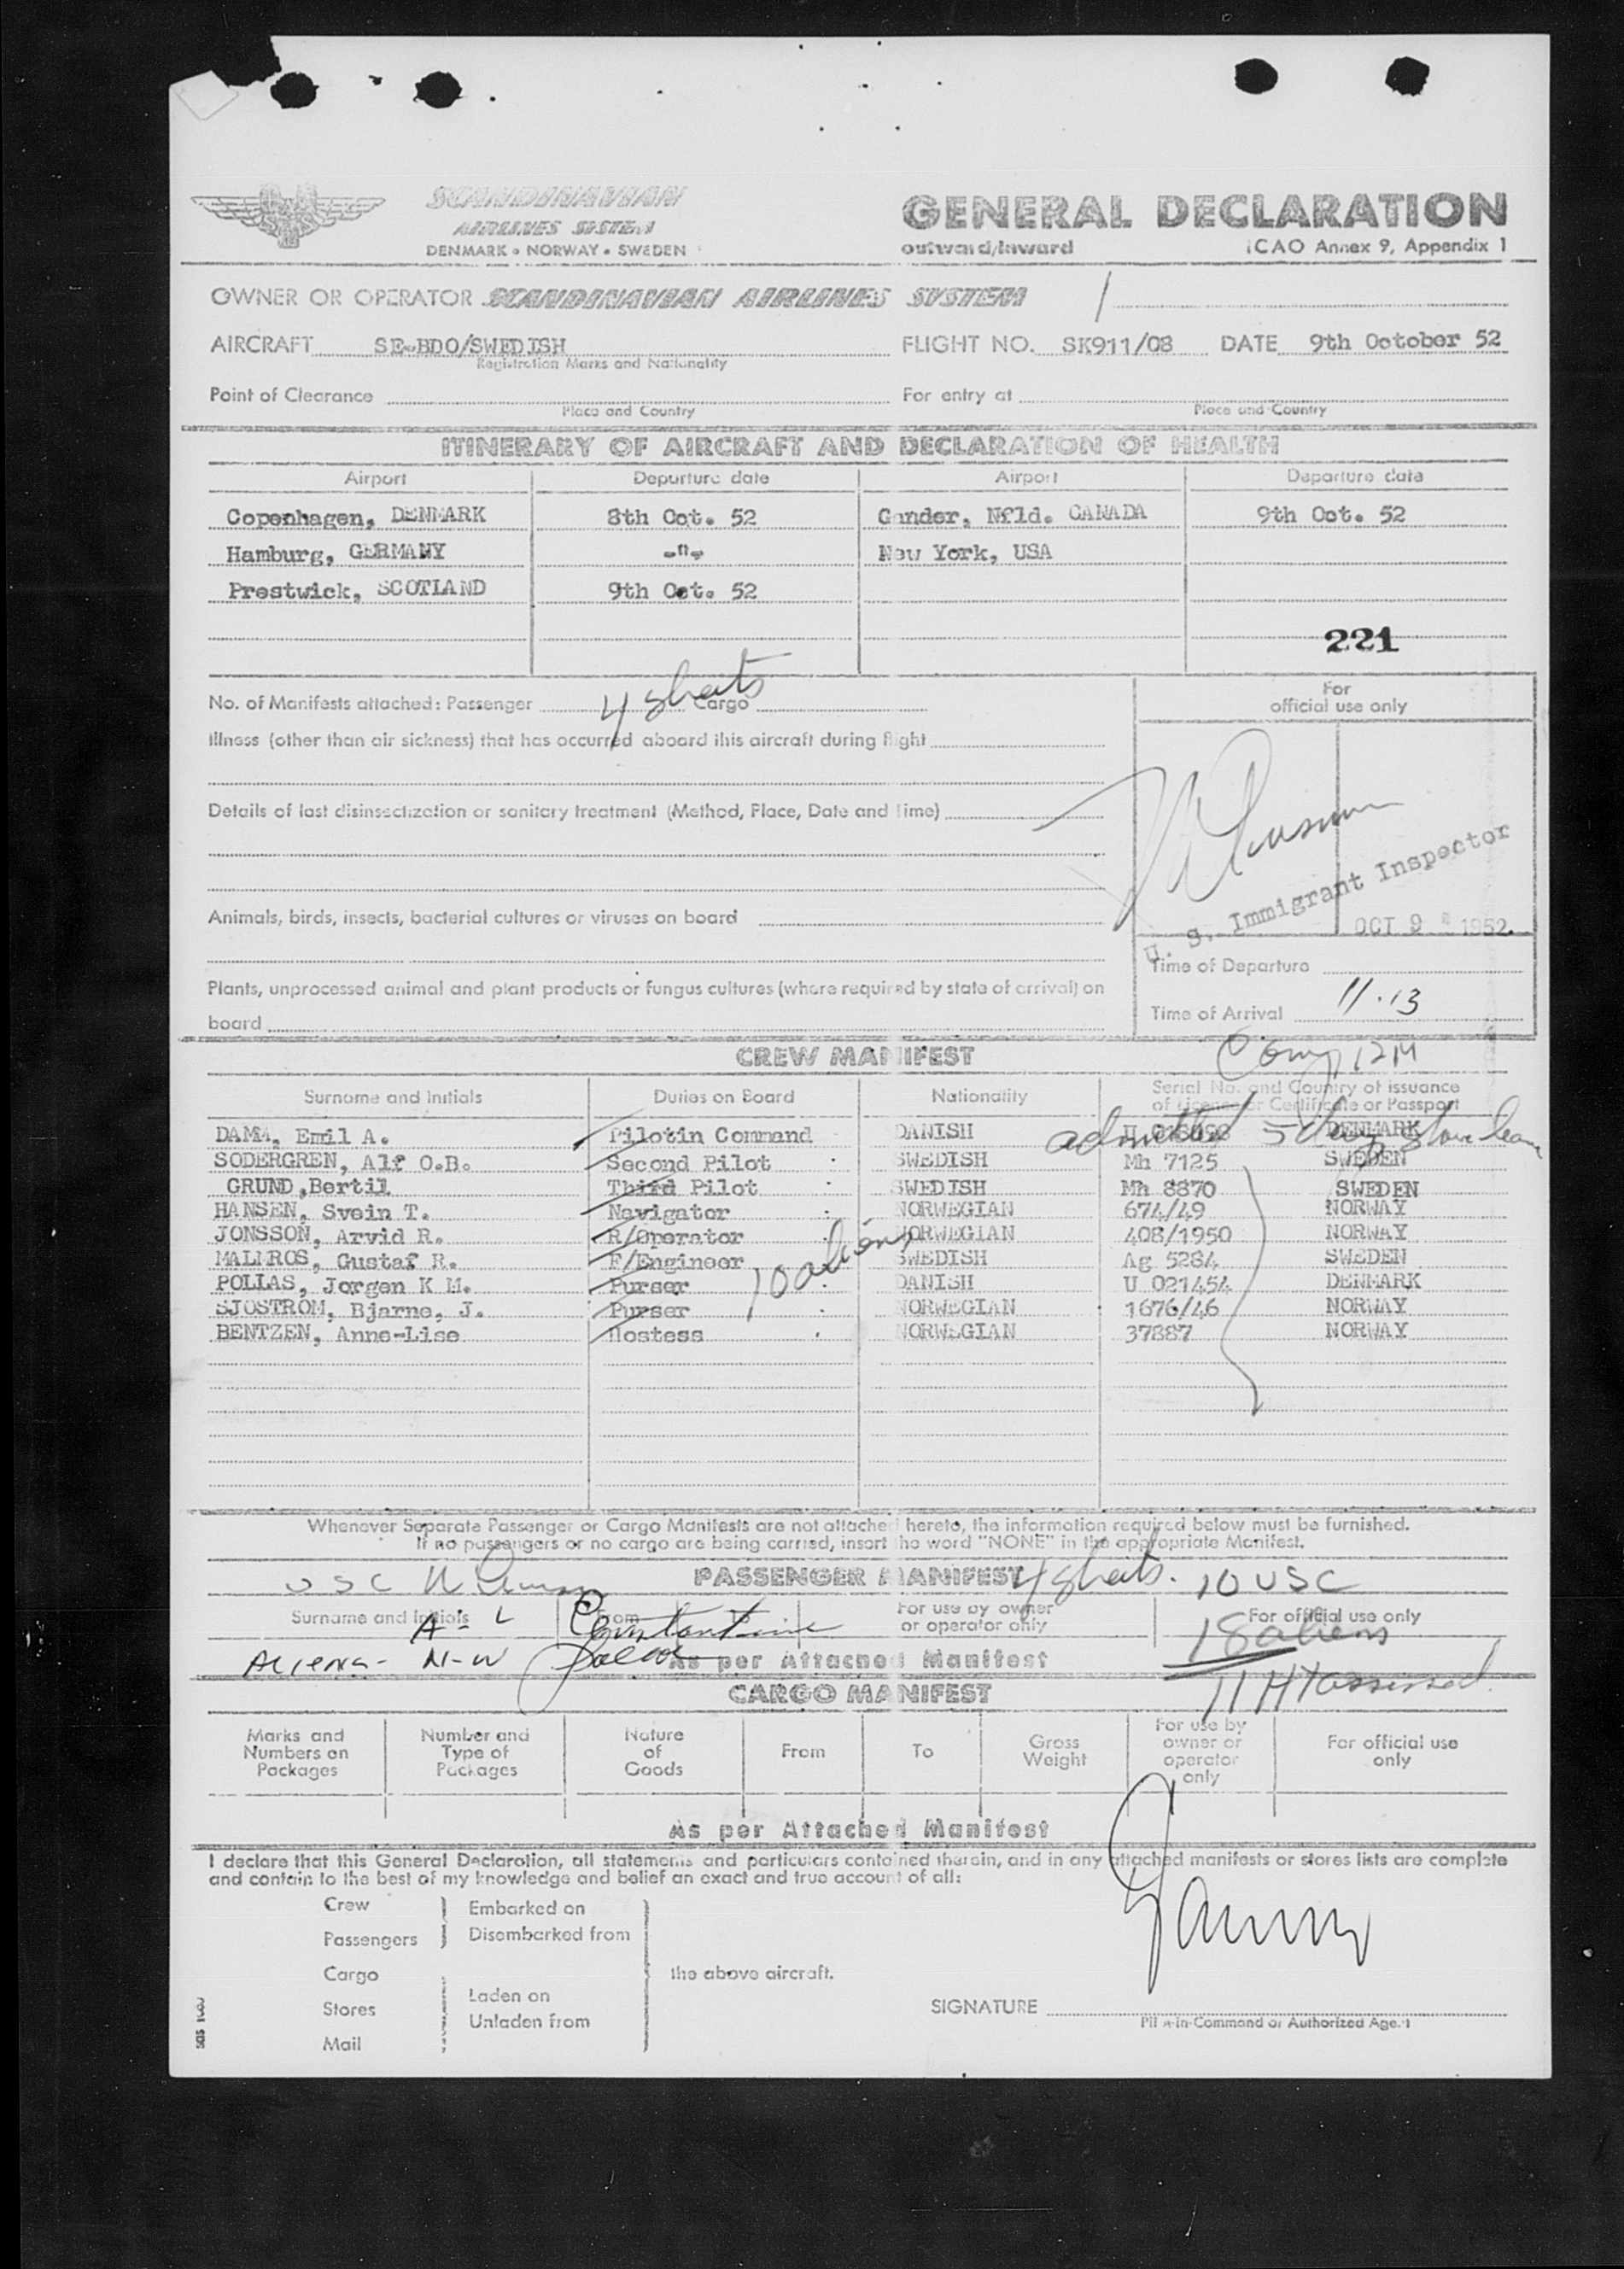 SCANDINAVIAN
AIRLINES SYSTEM
DENMARK • NORWAY • SWEDEN
GENERAL DECLARATION
outward/inward ICAO Annex 9, Appendix 1
OWNER OR OPERATOR SCANDINAVIAN AIRLINES SYSTEM
AIRCRAFT SE-BDO/SWEDISH FLIGHT NO. SK911/08 DATE 9th October 52
Registration Marks and Nationality
Point of Clearance For entry at
Place and Country Place and Country
ITINERARY OF AIRCRAFT AND DECLARATION OF HEALTH
Airport Departure date Airport Departure date
Copenhagen, DENMARK 8th Oct. 52 Gander, Nfld. CANADA 9th Oct. 52
Hamburg, GERMANY -"- New York, USA
Prestwick, SCOTLAND 9th Oct. 52
221
4 sheets
No. of Manifests attached: Passenger Cargo
For
official use only
Illness (other than air sickness) that has occurred aboard this aircraft during flight
Details of last disinsectization or sanitary treatment (Method, Place, Date and Time)
U. S. Immigrant Inspector
Animals, birds, insects, bacterial cultures or viruses on board
OCT 9 1952
Time of Departure
Plants, unprocessed animal and plant products or fungus cultures (where required by state of arrival) on
board
Time of Arrival 11.13
CREW MANIFEST
Surname and Initials Duties on Board Nationality Serial No. and Country of issuance
of License or Certificate or Passport
admitted
DAMM, Emil A. Pilotin Command DANISH DENMARK
SODERGREN, Alf O.B. Second Pilot SWEDISH Mh 7125 SWEDEN
GRUND,Bertil Third Pilot SWEDISH Mh 8870 SWEDEN
HANSEN, Svein T. Navigator NORWEGIAN 674/49 NORWAY
JONSSON, Arvid R. R/Operator NORWEGIAN 408/1950 NORWAY
MALLROS, Gustaf R. F/Engineer SWEDISH Ag 5284 SWEDEN
10 aliens
POLIAS, Jorgen K M. Purser DANISH U 021454 DENMARK
SJOSTROM, Bjarne, J. Purser NORWEGIAN 1676/46 NORWAY
BENTZEN, Anne-Lise Hostess NORWEGIAN 37887 NORWAY
Whenever Separate Passenger or Cargo Manifests are not attached hereto, the information required below must be furnished.
If no passengers or no cargo are being carried, insert the word "NONE" in the appropriate Manifest.
USC PASSENGER MANIFEST 4 sheets. 10 USC
Surname and Initials From To For use by owner
or operator only For official use only
A - L 18 aliens
Aliens - M-W
As per Attached Manifest
11 HT assessed.
CARGO MANIFEST
Marks and
Numbers on
Packages
Number and
Type of
Packages
Nature
of
Goods
From
To
Gross
Weight
For use by
owner or
operator
only
For official use
only
As per Attached Manifest
I declare that this General Declaration, all statements and particulars contained therein, and in any attached manifests or stores lists are complete
and contain to the best of my knowledge and belief an exact and true account of all:
Crew Embarked on
Passengers Disembarked from
Cargo the above aircraft.
Stores Laden on
Unladen from
Mail
SIGNATURE
Pilot-in-Command or Authorized Agent